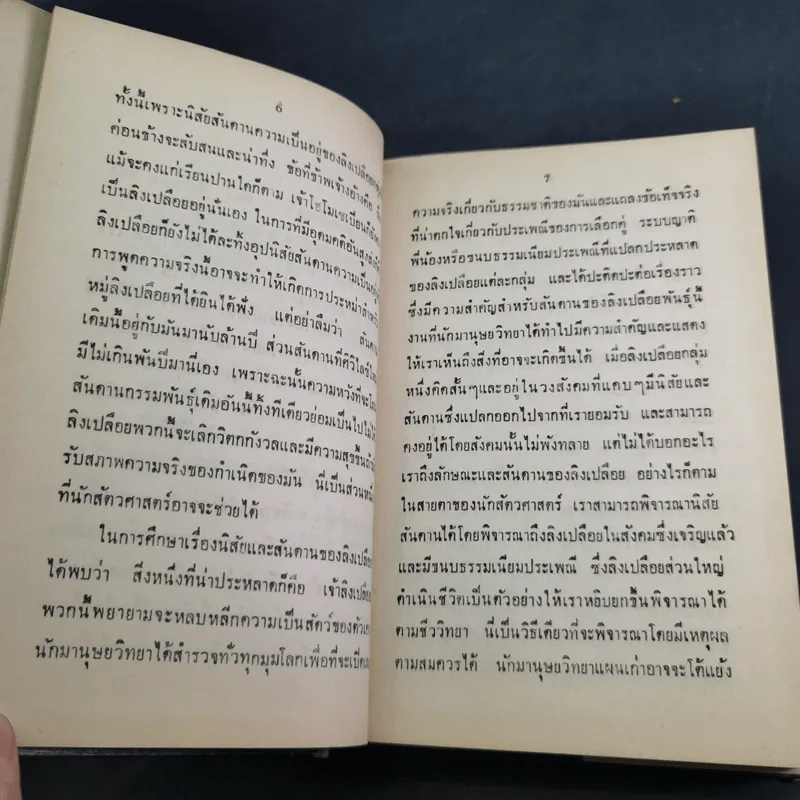 6
ทั้งนี้เพราะนิสัยสันดานความเป็นอยู่ของลิงเปลือย
ค่อนข้างจะลับสนและน่าทึ่ง ข้อที่ข้าพเจ้าอ้างคือ
แม้จะคงแก่เรียนปานใดก็ตาม เจ้าโฮโมเซเปียนก็ยัง
เป็นลิงเปลือยอยู่นั่นเอง ในการที่มีอุดมคติอันสูงส่ง
ลิงเปลือยก็ยังไม่ได้ละทิ้งอุปนิสัยสันดานความเป็นอยู่
การพูดความจริงนี้อาจจะทำให้เกิดการประหม่าสำหรับ
หมู่ลิงเปลือยที่ได้ยินได้ฟัง แต่อย่าลืมว่า สันดาน
เดิมนี้อยู่กับมันมานับล้านปี ส่วนสันดานที่ศิวิไลซ์
มีไม่เกินพันปีมานี่เอง เพราะฉะนั้นความหวังที่จะ
สันดานกรรมพันธุ์เดิมอันนี้ทิ้งทีเดียวย่อมเป็นไปไม่ได้
ลิงเปลือยพวกนี้จะเลิกวิตกกังวลและมีความสุขขึ้นถ้า
รับสภาพความจริงของกำเนิดของมัน นี่เป็นส่วนหนึ่ง
ที่นักสัตวศาสตร์อาจจะช่วยได้
ในการศึกษาเรื่องนิสัยและสันดานของลิงเปลือย
ได้พบว่า สิ่งหนึ่งที่น่าประหลาดก็คือ เจ้าลิงเปลือย
พวกนี้พยายามจะหลบหลีกความเป็นสัตว์ของตัวเอง
นักมานุษยวิทยาได้สำรวจทั่วทุกมุมโลกเพื่อที่จะเปิดเผย
7
ความจริงเกี่ยวกับธรรมชาติของมันและแถลงข้อเท็จจริง
ที่น่าตกใจเกี่ยวกับประเพณีของการเลือกคู่ ระบบญาติ
พี่น้องหรือขนบธรรมเนียมประเพณีที่แปลกประหลาด
ของลิงเปลือยแต่ละกลุ่ม และได้ปะติดปะต่อเรื่องราว
ซึ่งมีความสำคัญสำหรับสันดานของลิงเปลือยพันธุ์นี้
งานที่นักมานุษยวิทยาได้ทำไปมีความสำคัญและแสดง
ให้เราเห็นถึงสิ่งที่อาจจะเกิดขึ้นได้ เมื่อลิงเปลือยกลุ่ม
หนึ่งคิดสั้นๆและอยู่ในวงสังคมที่แคบๆมีนิสัยและ
สันดานซึ่งแปลกออกไปจากที่เรายอมรับ และสามารถ
คงอยู่ได้โดยสังคมนั้นไม่พังทลาย แต่ไม่ได้บอกอะไร
เราถึงลักษณะและสันดานของลิงเปลือย อย่างไรก็ตาม
ในสายตาของนักสัตวศาสตร์ เราสามารถพิจารณานิสัย
สันดานได้โดยพิจารณาถึงลิงเปลือยในสังคมซึ่งเจริญแล้ว
และมีขนบธรรมเนียมประเพณี ซึ่งลิงเปลือยส่วนใหญ่
ดำเนินชีวิตเป็นตัวอย่างให้เราหยิบยกขึ้นพิจารณาได้
ตามชีววิทยา นี่เป็นวิธีเดียวที่จะพิจารณาโดยมีเหตุผล
ตามสมควรได้ นักมานุษยวิทยาแผนเก่าอาจจะโต้แย้ง